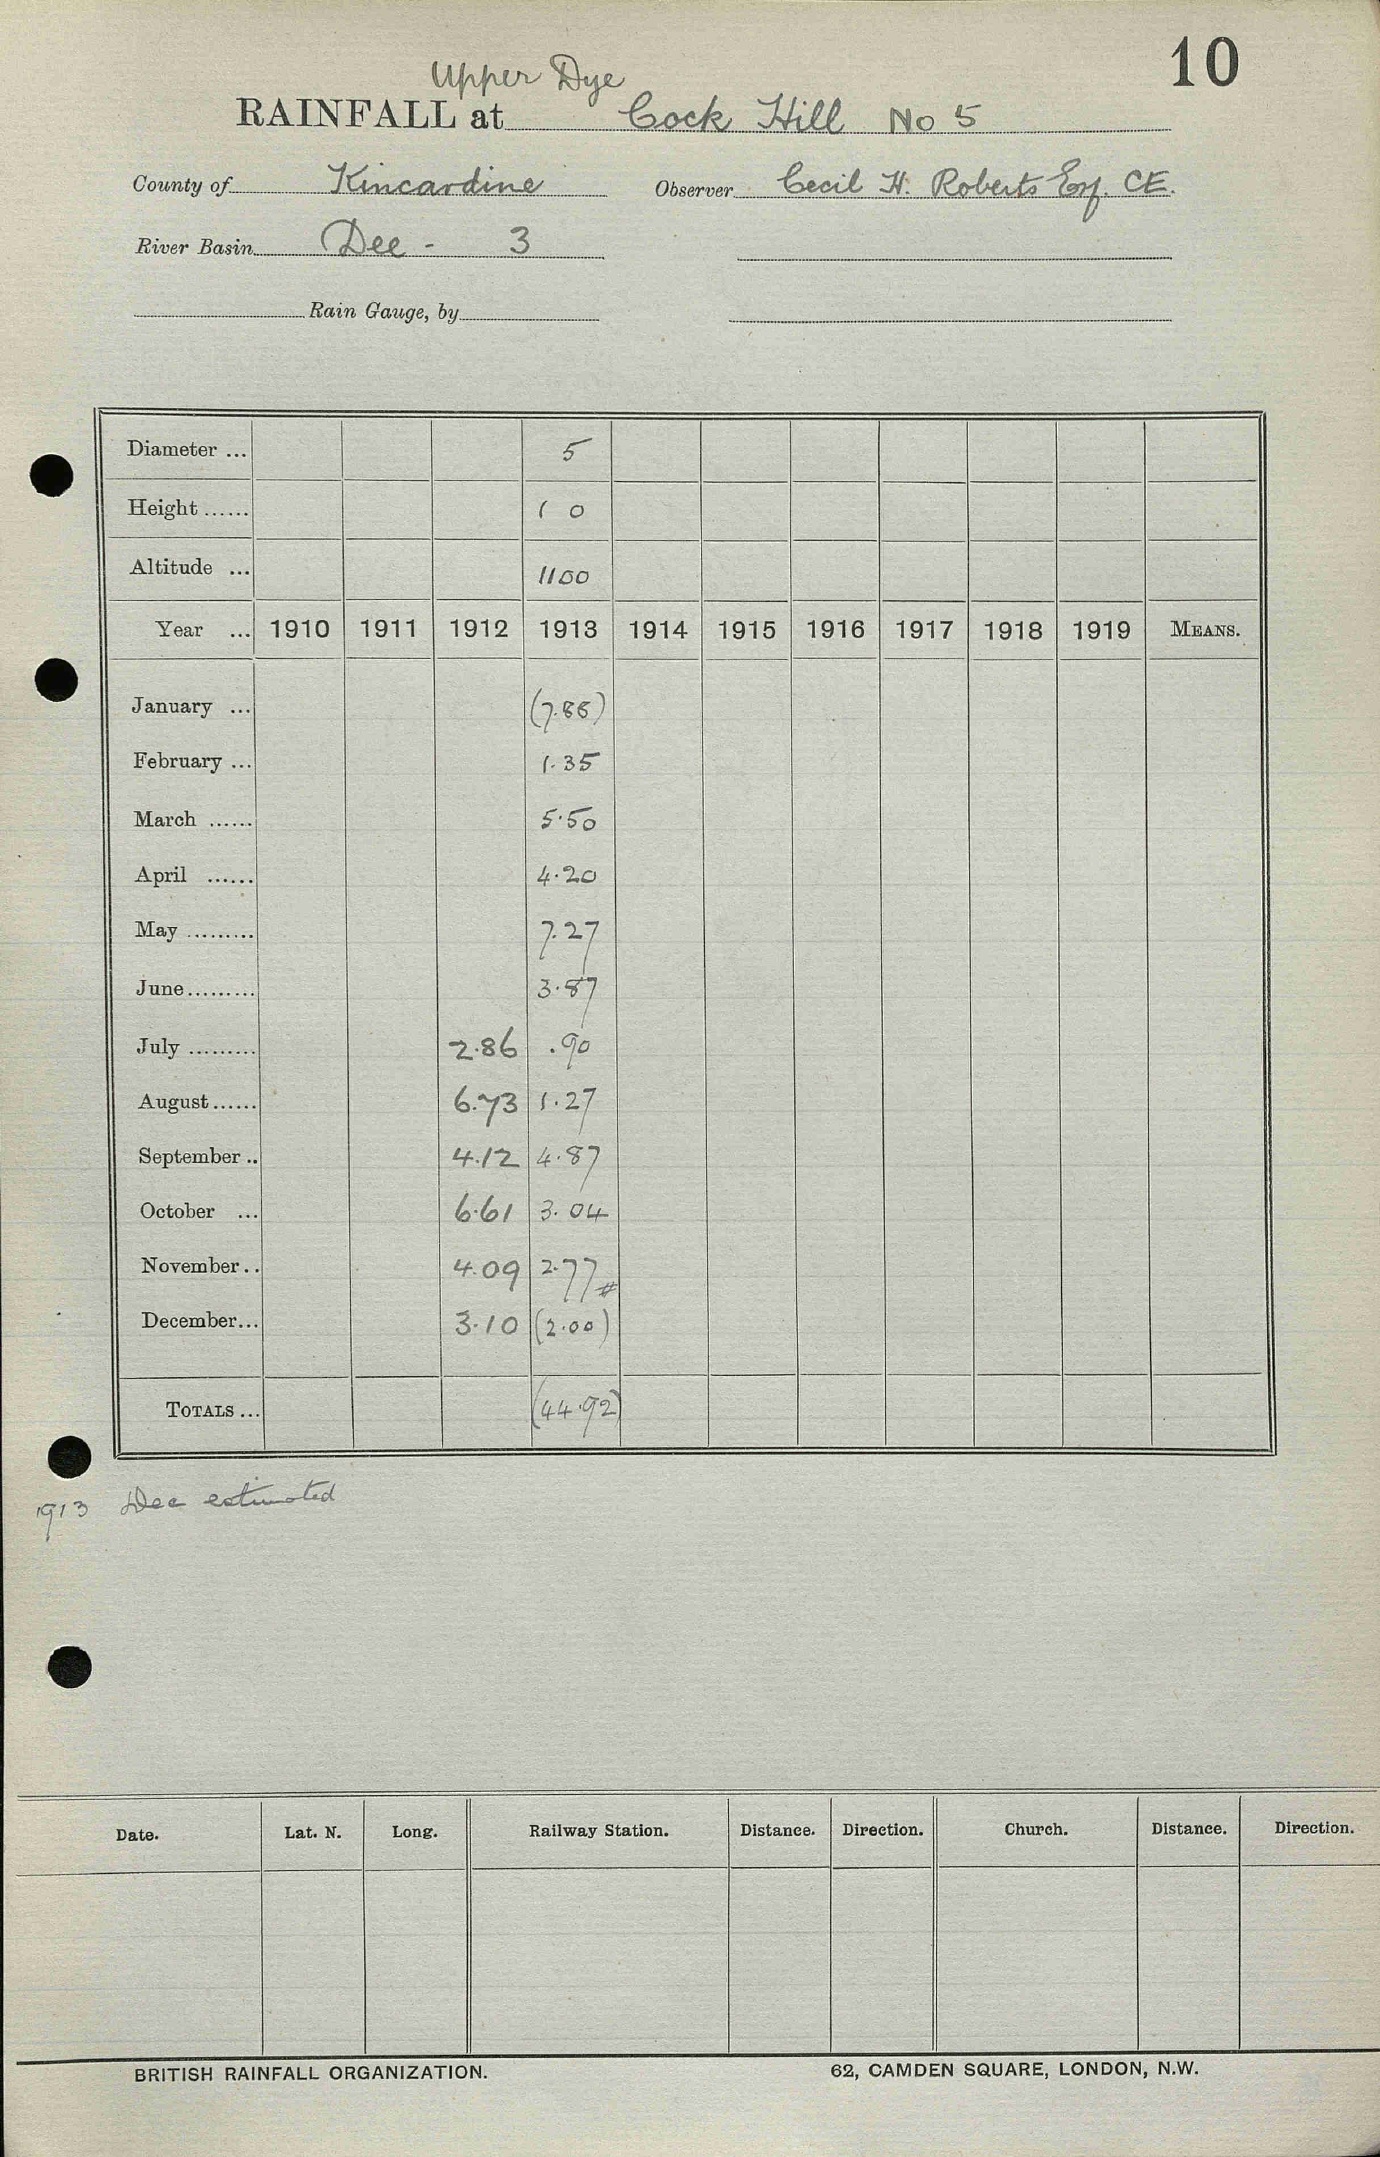 10
Upper Dye
RAINFALL at Cock Hill No 5
County of Kincardine Observer Cecil H. Roberts Esq. CE.
River Basin Dee - 3
Rain Gauge, by
Diameter ... 5
Height ...... 1 0
Altitude ... 1100
Year ... 1910 1911 1912 1913 1914 1915 1916 1917 1918 1919 MEANS.
January ... (7.88)
February ... 1.35
March ...... 5.50
April ...... 4.20
May ......... 7.27
June ......... 3.87
July ......... 2.86 .90
August ...... 6.73 1.27
September .. 4.12 4.87
October ... 6.61 3.04
November .. 4.09 2.77 #
December ... 3.10 (2.00)
TOTALS ... (44.92)
1913 Dec estimated
Date. Lat. N. Long. Railway Station. Distance. Direction. Church. Distance. Direction.
BRITISH RAINFALL ORGANIZATION. 62, CAMDEN SQUARE, LONDON, N.W.